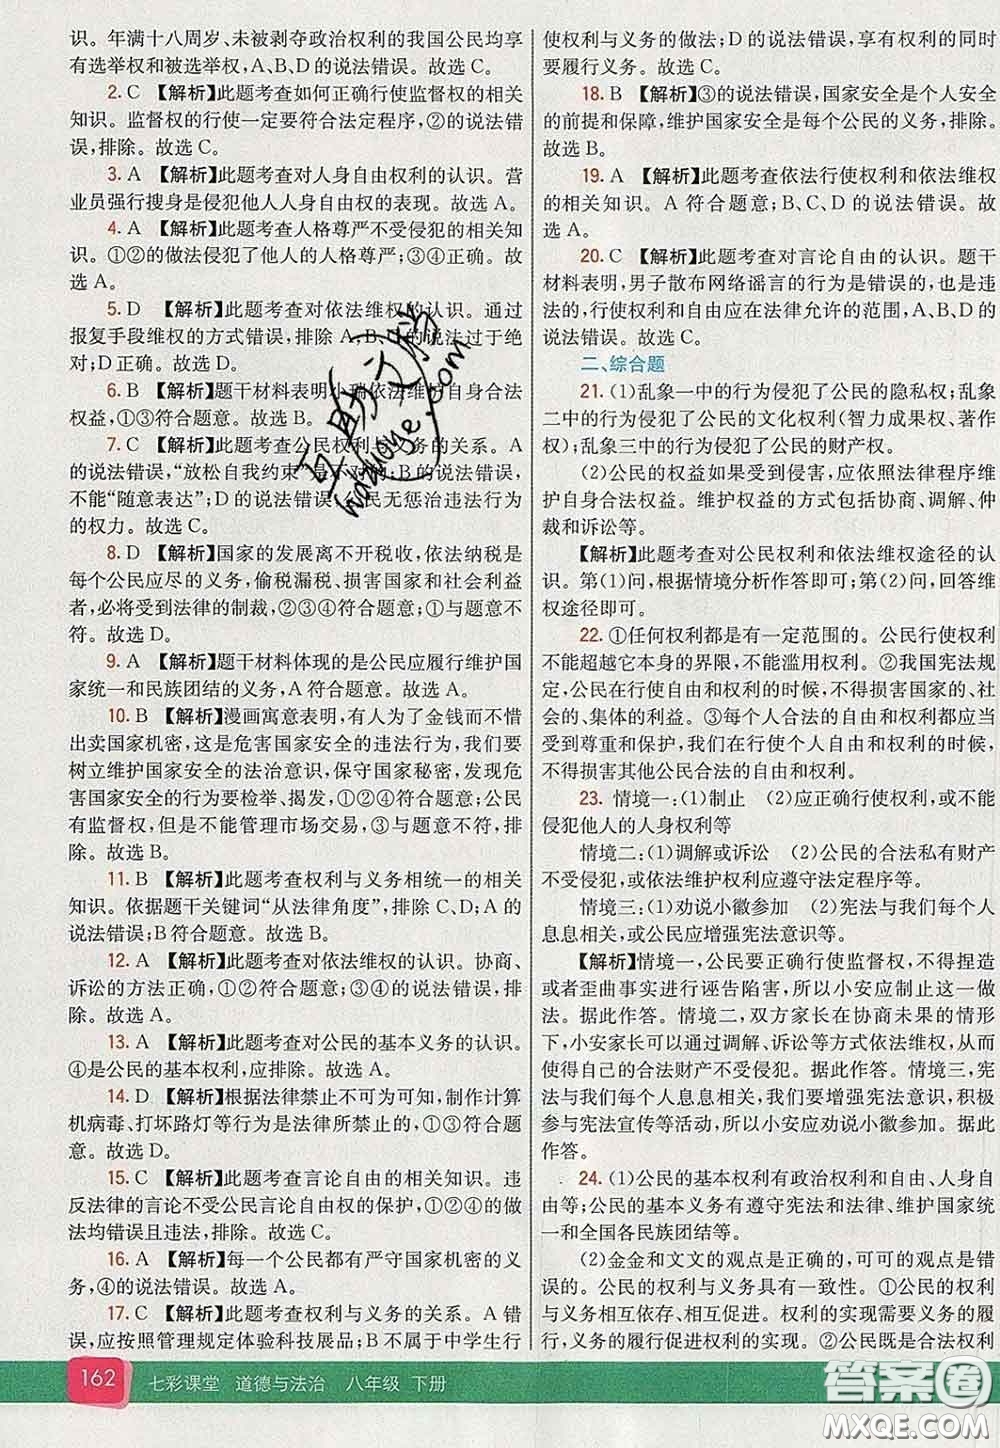 识。年满十八周岁、未被剥夺政治权利的我国公民均享
有选举权和被选举权,A、B、D的说法错误。故选C。
2. C 【解析】此题考查如何正确行使监督权的相关
知识。监督权的行使一定要符合法定程序,②的说法错
误,排除。故选C。
3. A 【解析】此题考查对人身自由权利的认识。营
业员强行搜身是侵犯他人人身自由权的表现。故选A。
4. A 【解析】此题考查人格尊严不受侵犯的相关知
识。①②的做法侵犯了他人的人格尊严;③④正确。故
选A。
5. D 【解析】此题考查对依法维权的认识。通过
报复手段维权的方式错误,排除A、B、C的说法过于绝
对;D正确。故选D。
6. B 【解析】题干材料表明小瑞依法维护自身合法
权益,①③符合题意。故选B。
7. C 【解析】此题考查公民权利与义务的关系。A
的说法错误,“放松自我约束”是不对的;B的说法错误,
不能“随意表达”;D的说法错误,公民无惩治违法行为
的权力。故选C。
8. D 【解析】国家的发展离不开税收,依法纳税是
每个公民应尽的义务,偷税漏税、损害国家和社会利益
者,必将受到法律的制裁,②③④符合题意;①与题意不
符。故选D。
9. A 【解析】题干材料体现的是公民应履行维护国
家统一和民族团结的义务,A符合题意。故选A。
10. B 【解析】漫画寓意表明,有人为了金钱而不惜
出卖国家机密,这是危害国家安全的违法行为,我们要
树立维护国家安全的法治意识,保守国家机密,发现危
害国家安全的行为要检举、揭发,①②④符合题意;公民
有监督权,但是不能管理市场交易,③与题意不符,排
除。故选B。
11. B 【解析】此题考查权利与义务相统一的相关
知识。依据题干关键词“从法律角度”,排除C、D;A的
说法错误;B符合题意。故选B。
12. A 【解析】此题考查对依法维权的认识。协商、
诉讼的方法正确,①②符合题意;③④的说法错误,排
除。故选A。
13. A 【解析】此题考查对公民的基本义务的认识。
④是公民的基本权利,应排除。故选A。
14. D 【解析】根据法律禁止不可为可知,制作计算
机病毒、打坏路灯等行为是法律所禁止的,①③符合题
意。故选D。
15. C 【解析】此题考查言论自由的相关知识。违
反法律的言论不受公民言论自由权的保护,①②④的做
法均错误且违法,排除。故选C。
16. A 【解析】每一个公民都有严守国家机密的义
务,④的说法错误。故选A。
17. C 【解析】此题考查权利与义务的关系。A错
误,应按照管理规定体验科技展品;B不属于中学生行
使权利与义务的做法;D的说法错误,享有权利的同时
要履行义务。故选C。
18. B 【解析】③的说法错误,国家安全是个人安全
的前提和保障,维护国家安全是每个公民的义务,排除。
故选B。
19. A 【解析】此题考查依法行使权利和依法维权
的相关知识。A符合题意;B、C、D的说法错误。故
选A。
20. C 【解析】此题考查对言论自由的认识。题干
材料表明,男子散布网络谣言的行为是错误的,也是违
法的,行使权利和自由应在法律允许的范围,A、B、D的
说法错误。故选C。
二、综合题
21. (1)乱象一中的行为侵犯了公民的隐私权;乱象
二中的行为侵犯了公民的文化权利(智力成果权、著作
权);乱象三中的行为侵犯了公民的财产权。
(2)公民的权益如果受到侵害,应依照法律程序维
护自身合法权益。维护权益的方式包括协商、调解、仲
裁和诉讼等。
【解析】此题考查对公民权利和依法维权途径的认
识。第(1)问,根据情境分析作答即可;第(2)问,回答维
权途径即可。
22. ①任何权利都是有一定范围的。公民行使权利
不能超越它本身的界限,不能滥用权利。②我国宪法规
定,公民在行使自由和权利的时候,不得损害国家的、社
会的、集体的利益。③每个人合法的自由和权利都应当
受到尊重和保护,我们在行使个人自由和权利的时候,
不得损害其他公民合法的自由和权利。
23. 情境一:(1)制止 (2)应正确行使权利,或不能
侵犯他人的人身权利等
情境二:(1)调解或诉讼 (2)公民的合法私有财产
不受侵犯,或依法维护权利应遵守法定程序等。
情境三:(1)劝说小徽参加 (2)宪法与我们每个人
息息相关,或公民应增强宪法意识等。
【解析】情境一,公民要正确行使监督权,不得捏造
或者歪曲事实进行诬告陷害,所以小安应制止这一做
法。据此作答。情境二,双方家长在协商未果的情形
下,小安家可以通过调解、诉讼等方式依法维权,从而
使得自己的合法财产不受侵犯。据此作答。情境三,宪
法与我们每个人息息相关,要增强宪法意识,积极参
与宪法宣传等活动,所以小安应劝说小徽参加。据此
作答。
24. (1)公民的基本权利有政治权利和自由、人身自
由等;公民的基本义务有遵守宪法和法律、维护国家统
一和全国各民族团结等。
(2)金金和文文的观点是正确的,可可的观点是错
误的。公民的权利与义务具有一致性。①公民的权利
与义务相互依存、相互促进。权利的实现需要义务的履
行,义务的履行促进权利的实现。②公民既是合法权利
162 七彩课堂 道德与法治 八年级 下册
答案圈
MXQE.COM